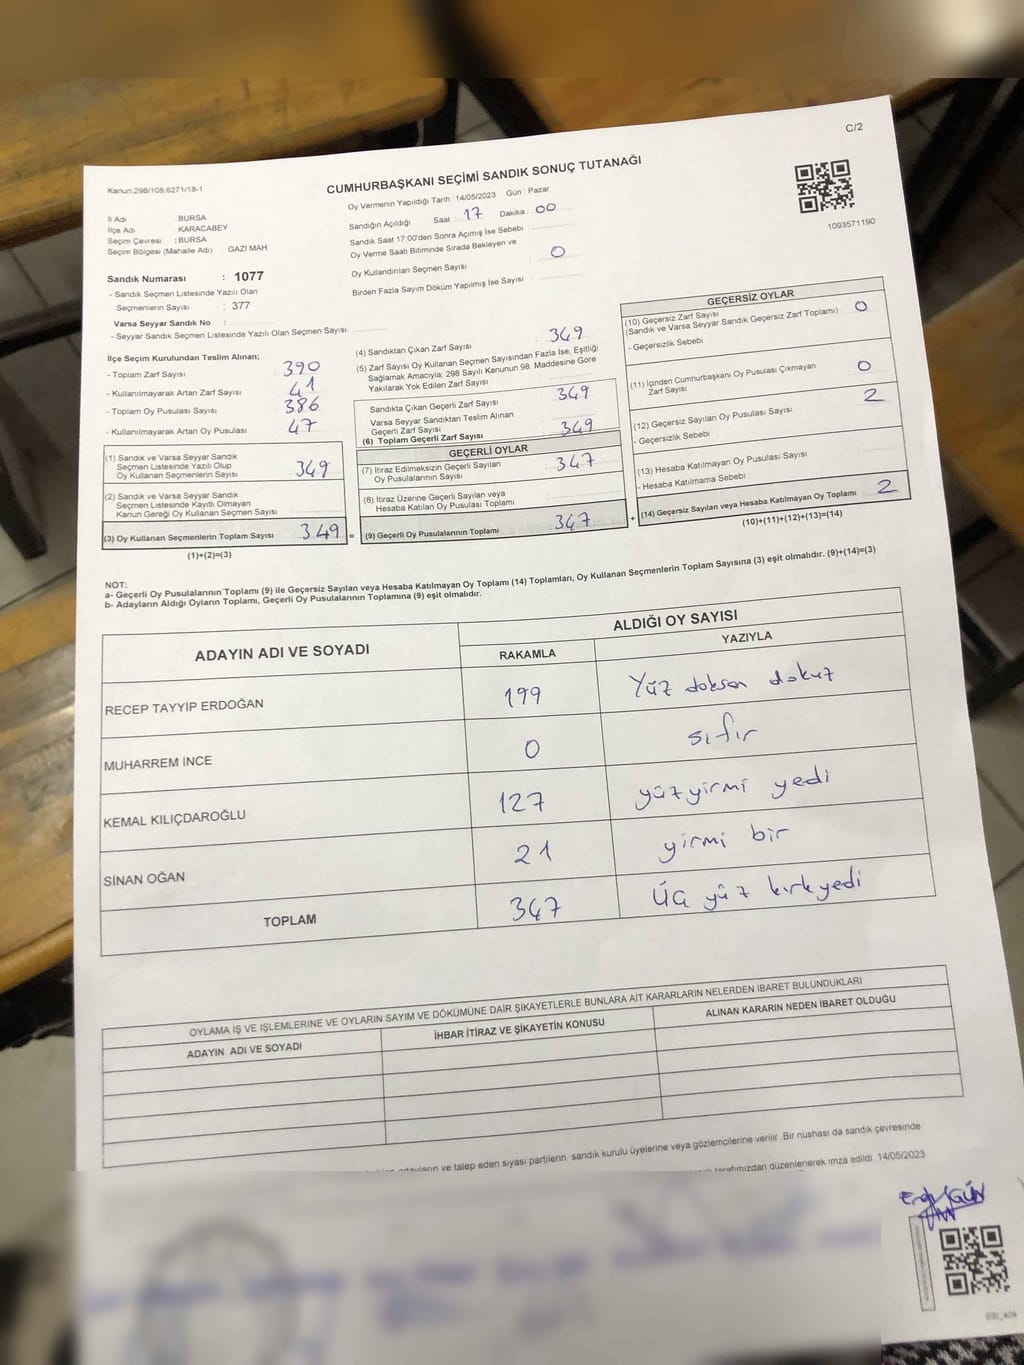 C/2
Kanun:298/105;6271/18-1
CUMHURBAŞKANI SEÇİMİ SANDIK SONUÇ TUTANAĞI
Oy Vermenin Yapıldığı Tarih : 14/05/2023 Gün : Pazar
İl Adı BURSA
İlçe Adı KARACABEY
Seçim Çevresi : BURSA
Seçim Bölgesi (Mahalle Adı) GAZİ MAH.
Sandığın Açıldığı Saat 17 Dakika : 00
Sandık Saat 17:00'den Sonra Açımış İse Sebebi
Oy Verme Saati Bitiminde Sırada Bekleyen ve
Oy Kullandırılan Seçmen Sayısı 0
Birden Fazla Sayım Döküm Yapılmış İse Sayısı :
1093571190
Sandık Numarası : 1077
- Sandık Seçmen Listesinde Yazılı Olan
Seçmenlerin Sayısı : 377
Varsa Seyyar Sandık No :
- Seyyar Sandık Seçmen Listesinde Yazılı Olan Seçmen Sayısı:
İlçe Seçim Kurulundan Teslim Alınan;
- Toplam Zarf Sayısı : 390
- Kullanılmayarak Artan Zarf Sayısı : 41
- Toplam Oy Pusulası Sayısı : 386
- Kullanılmayarak Artan Oy Pusulası : 47
(1) Sandık ve Varsa Seyyar Sandık
Seçmen Listesinde Yazılı Olup
Oy Kullanan Seçmenlerin Sayısı : 349
(2) Sandık ve Varsa Seyyar Sandık
Seçmen Listesinde Kayıtlı Olmayan
Kanun Gereği Oy Kullanan Seçmen Sayısı :
(3) Oy Kullanan Seçmenlerin Toplam Sayısı 349 =
(1)+(2)=(3)
(4) Sandıktan Çıkan Zarf Sayısı : 349
(5) Zarf Sayısı Oy Kullanan Seçmen Sayısından Fazla İse, Eşitliği
Sağlamak Amacıyla; 298 Sayılı Kanunun 98. Maddesine Göre
Yakılarak Yok Edilen Zarf Sayısı :
Sandıkta Çıkan Geçerli Zarf Sayısı : 349
Varsa Seyyar Sandıktan Teslim Alınan
Geçerli Zarf Sayısı
(6) Toplam Geçerli Zarf Sayısı 349
GEÇERLİ OYLAR
(7) İtiraz Edilmeksizin Geçerli Sayılan
Oy Pusulalarının Sayısı : 347
(8) İtiraz Üzerine Geçerli Sayılan veya
Hesaba Katılan Oy Pusulası Toplamı :
(9) Geçerli Oy Pusulalarının Toplamı 347 +
GEÇERSİZ OYLAR
(10) Geçersiz Zarf Sayısı
(Sandık ve Varsa Seyyar Sandık Geçersiz Zarf Toplamı) 0
- Geçersizlik Sebebi
(11) İçinden Cumhurbaşkanı Oy Pusulası Çıkmayan
Zarf Sayısı 0
(12) Geçersiz Sayılan Oy Pusulası Sayısı 2
- Geçersizlik Sebebi
(13) Hesaba Katılmayan Oy Pusulası Sayısı
- Hesaba Katılmama Sebebi :
(14) Geçersiz Sayılan veya Hesaba Katılmayan Oy Toplamı 2
(10)+(11)+(12)+(13)=(14)
NOT:
a- Geçerli Oy Pusulalarının Toplamı (9) ile Geçersiz Sayılan veya Hesaba Katılmayan Oy Toplamı (14) Toplamları, Oy Kullanan Seçmenlerin Toplam Sayısına (3) eşit olmalıdır. (9)+(14)=(3)
b- Adayların Aldığı Oyların Toplamı, Geçerli Oy Pusulalarının Toplamına (9) eşit olmalıdır.
ADAYIN ADI VE SOYADI ALDIĞI OY SAYISI
RAKAMLA YAZIYLA
RECEP TAYYİP ERDOĞAN 199 Yüz doksan dokuz
MUHARREM İNCE 0 sıfır
KEMAL KILIÇDAROĞLU 127 yüzyirmi yedi
SİNAN OĞAN 21 yirmi bir
TOPLAM 347 Üç yüz kırkyedi
OYLAMA İŞ VE İŞLEMLERİNE VE OYLARIN SAYIM VE DÖKÜMÜNE DAİR ŞİKAYETLERLE BUNLARA AİT KARARLARIN NELERDEN İBARET BULUNDUKLARI
ADAYIN ADI VE SOYADI İHBAR İTİRAZ VE ŞİKAYETİN KONUSU ALINAN KARARIN NEDEN İBARET OLDUĞU
adayların ve talep eden siyasi partilerin sandık kurulu üyelerine veya gözlemcilerine verilir .Bir nüshası da sandık çevresinde
tarafımızdan düzenlenerek imza edildi. 14/05/2023